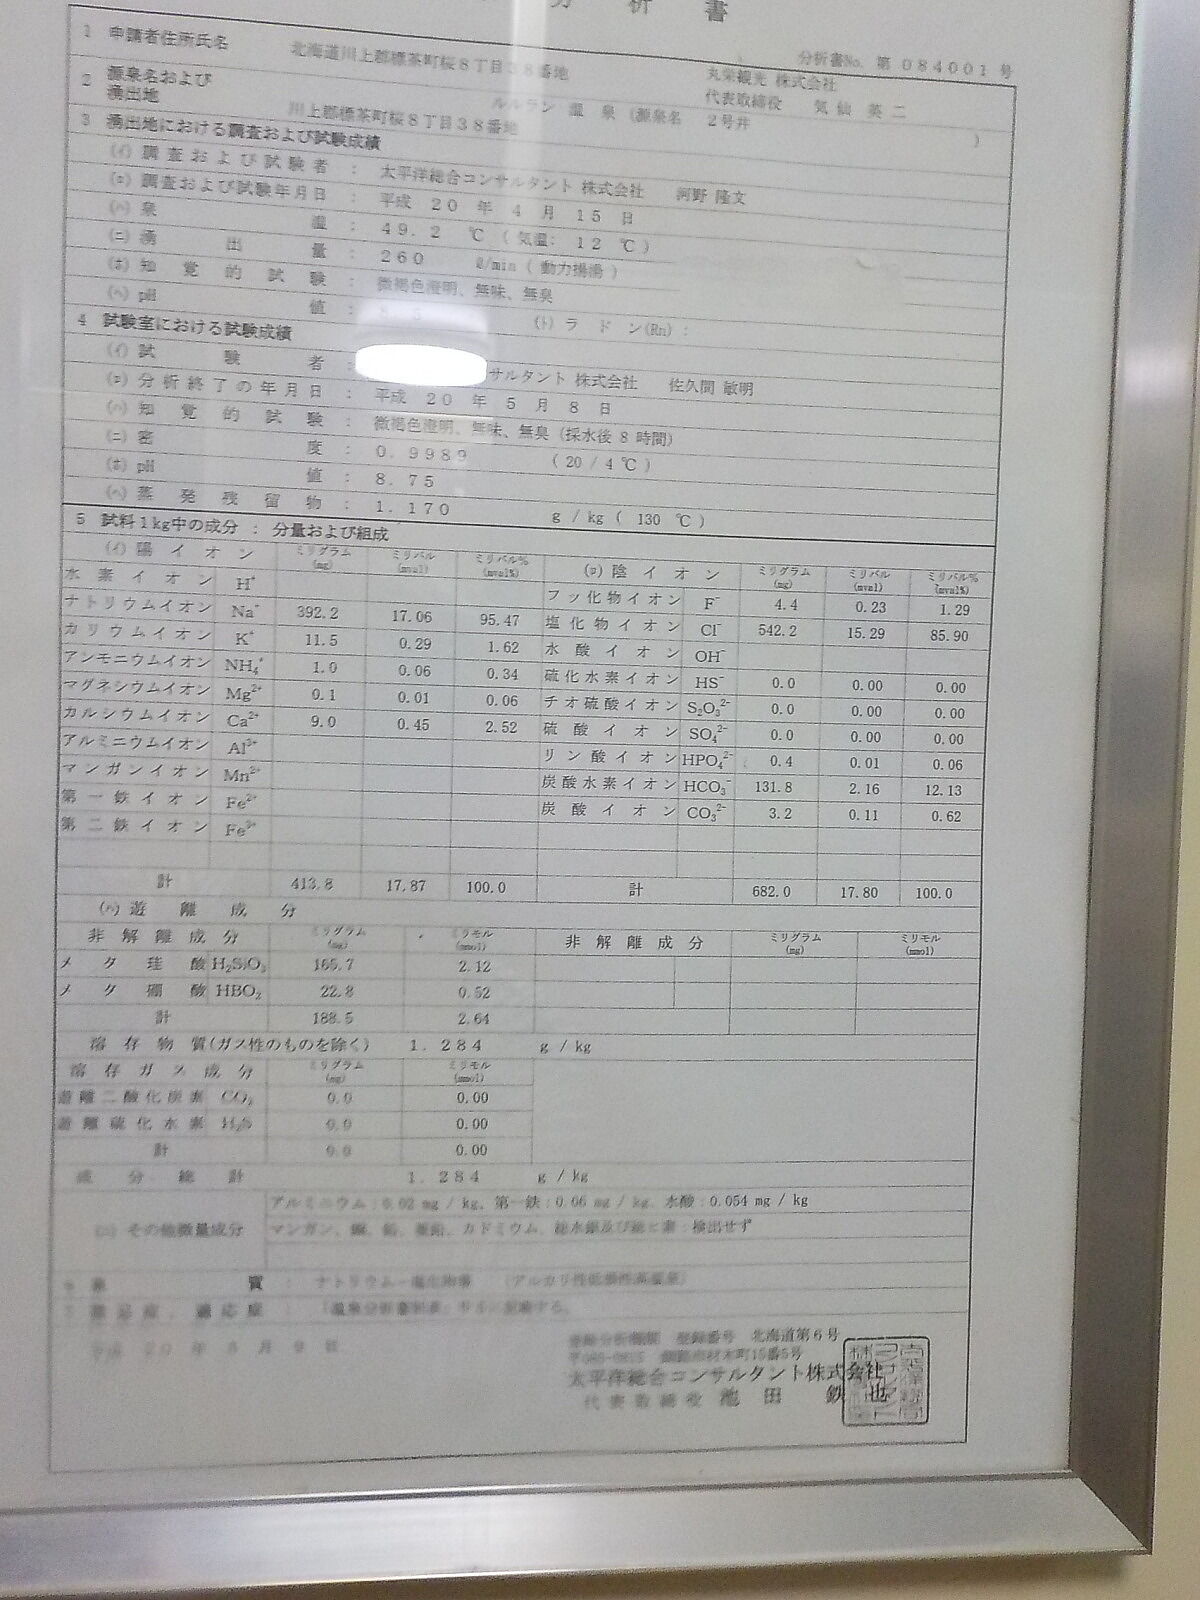 分 析 書
分析書No. 第 084001 号
1 申請者住所氏名 北海道川上郡標茶町桜8丁目38番地 丸栄観光 株式会社
代表取締役 気仙 英二
2 源泉名および湧出地 ルルラン 温 泉 (源泉名 2号井 )
川上郡標茶町桜8丁目38番地
3 湧出地における調査および試験成績
(イ) 調査および試験者 : 太平洋総合コンサルタント 株式会社 河野 隆文
(ロ) 調査および試験年月日 : 平成 20 年 4 月 15 日
(ハ) 泉 温 : 49.2 ℃ ( 気温: 12 ℃ )
(ニ) 湧 出 量 : 260 ℓ/min ( 動力揚湯 )
(ホ) 知 覚 的 試 験 : 微褐色澄明、無味、無臭
(ヘ) pH 値 : (ト) ラ ド ン(Rn) :
4 試験室における試験成績
(イ) 試 験 者 : サルタント 株式会社 佐久間 敏明
(ロ) 分析終了の年月日 : 平成 20 年 5 月 8 日
(ハ) 知 覚 的 試 験 : 微褐色澄明、無味、無臭 (採水後 8 時間)
(ニ) 密 度 : 0.9989 ( 20 / 4 ℃ )
(ホ) pH 値 : 8.75
(ヘ) 蒸 発 残 留 物 : 1.170 g / kg ( 130 ℃ )
5 試料1kg中の成分 : 分量および組成
(イ) 陽 イ オ ン ミリグラム (mg) ミリバル (mval) ミリバル% (mval%) (ロ) 陰 イ オ ン ミリグラム (mg) ミリバル (mval) ミリバル% (mval%)
水 素 イ オ ン H⁺ フ ッ 化 物 イ オ ン F⁻ 4.4 0.23 1.29
ナトリウムイオン Na⁺ 392.2 17.06 95.47 塩 化 物 イ オ ン Cl⁻ 542.2 15.29 85.90
カ リ ウ ム イ オ ン K⁺ 11.5 0.29 1.62 水 酸 イ オ ン OH⁻
アンモニウムイオン NH₄⁺ 1.0 0.06 0.34 硫 化 水 素 イ オ ン HS⁻ 0.0 0.00 0.00
マグネシウムイオン Mg²⁺ 0.1 0.01 0.06 チ オ 硫 酸 イ オ ン S₂O₃²⁻ 0.0 0.00 0.00
カルシウムイオン Ca²⁺ 9.0 0.45 2.52 硫 酸 イ オ ン SO₄²⁻ 0.0 0.00 0.00
アルミニウムイオン Al³⁺ リ ン 酸 イ オ ン HPO₄²⁻ 0.4 0.01 0.06
マ ン ガ ン イ オ ン Mn²⁺ 炭 酸 水 素 イ オ ン HCO₃⁻ 131.8 2.16 12.13
第 一 鉄 イ オ ン Fe²⁺ 炭 酸 イ オ ン CO₃²⁻ 3.2 0.11 0.62
第 二 鉄 イ オ ン Fe³⁺
計 413.8 17.87 100.0 計 682.0 17.80 100.0
(ハ) 遊 離 成 分
非 解 離 成 分 ミリグラム (mg) ミリモル (mmol) 非 解 離 成 分 ミリグラム (mg) ミリモル (mmol)
メ タ 珪 酸 H₂SiO₃ 165.7 2.12
メ タ 硼 酸 HBO₂ 22.8 0.52
計 188.5 2.64
溶 存 物 質 (ガス性のものを除く) 1.284 g / kg
溶 存 ガ ス 成 分 ミリグラム (mg) ミリモル (mmol)
遊 離 二 酸 化 炭 素 CO₂ 0.0 0.00
遊 離 硫 化 水 素 H₂S 0.0 0.00
計 0.0 0.00
成 分 総 計 1.284 g / kg
(ニ) その他微量成分 アルミニウム : 0.02 mg / kg、第一鉄 : 0.06 mg / kg、水酸 : 0.054 mg / kg
マンガン、銅、鉛、亜鉛、カドミウム、総水銀及び総ヒ素 : 検出せず
泉 質 : ナトリウム-塩化物泉 (アルカリ性低張性高温泉)
登録分析機関 登録番号 北海道第6号
太平洋総合コンサルタント株式会社
代 表 取 締 役 池 田 鉄 也